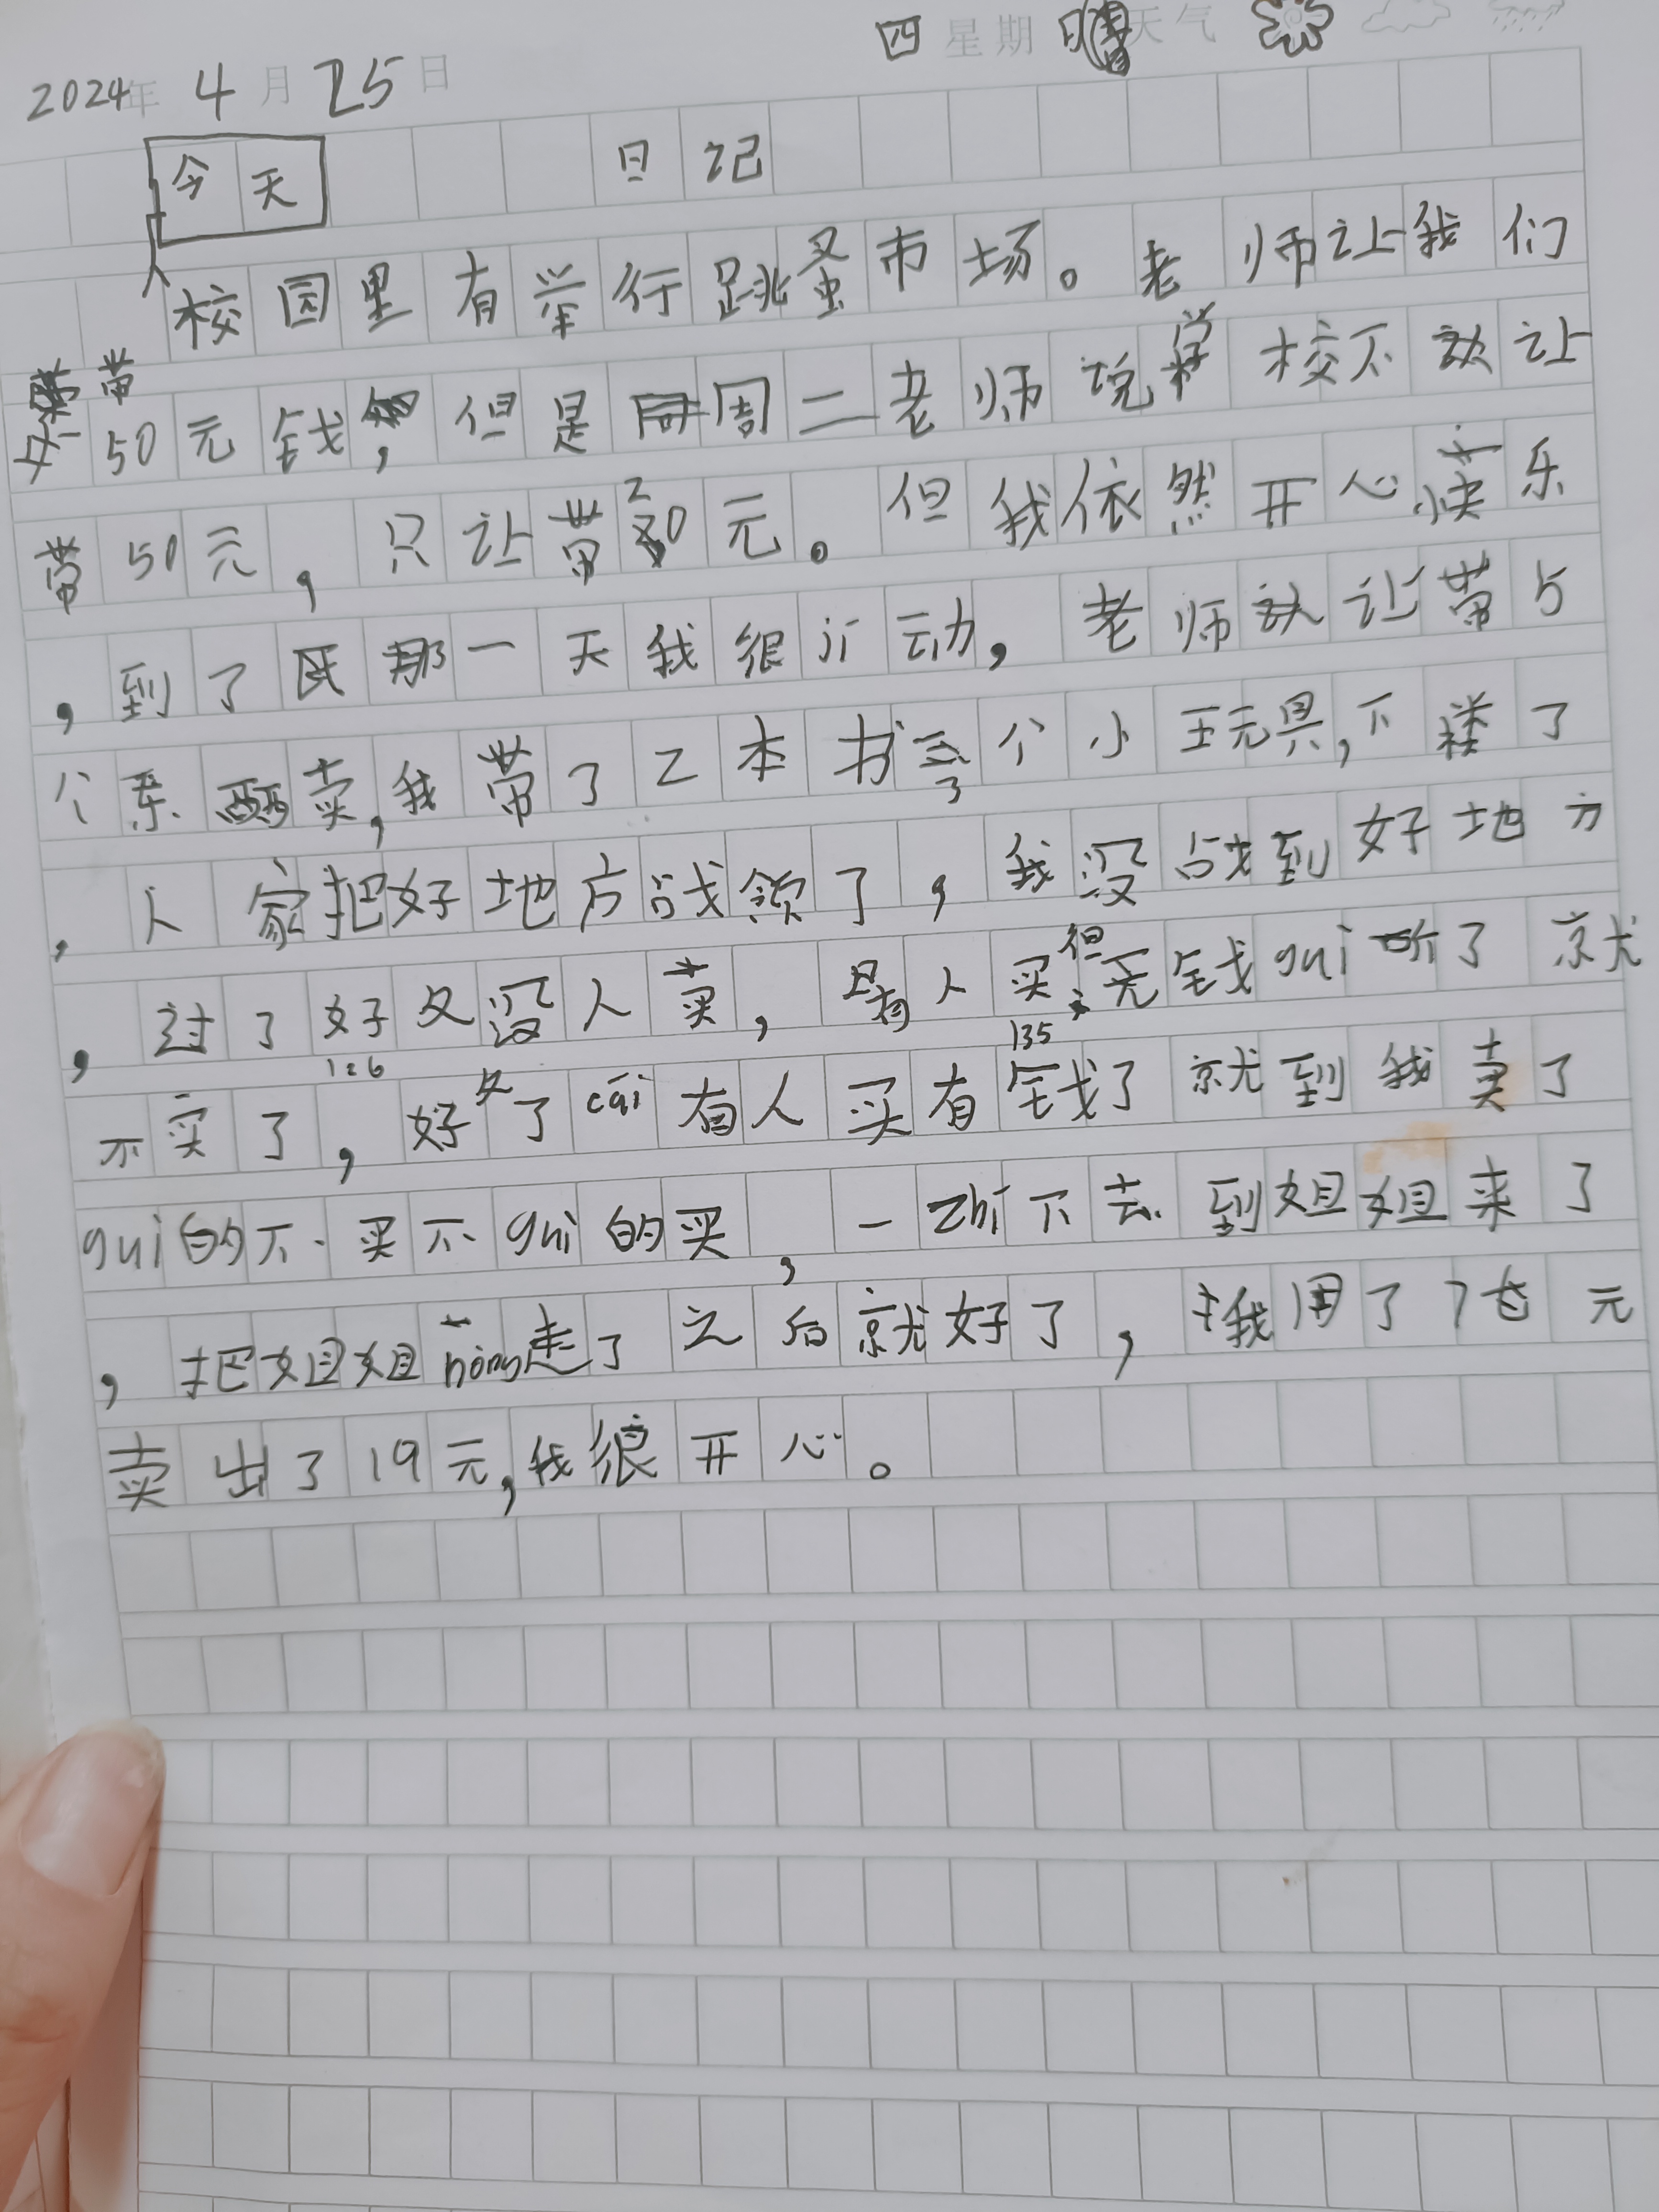 四 星期 天气
2024年 4月 25日
今天 日记
校园里有举行跳蚤市场。老师让我们
带50元钱,但是周二老师说学校不让
带50元,只让带20元。但我依然开心快乐
,到了那一天我很ji动,老师让带5
个东西卖,我带了2本书3个小玩具,下楼了
,人家把好地方占领了,我没占到好地方
,过了好久没人卖,只有人买,但无钱gui听了就
不买了,好久了cái有人买有钱了就到我卖了
126 135
gui的不买不gui的买,一zhí下去到姐姐来了
,把姐姐nòng走了之后就好了,我用了7元
卖出了19元,我很开心。